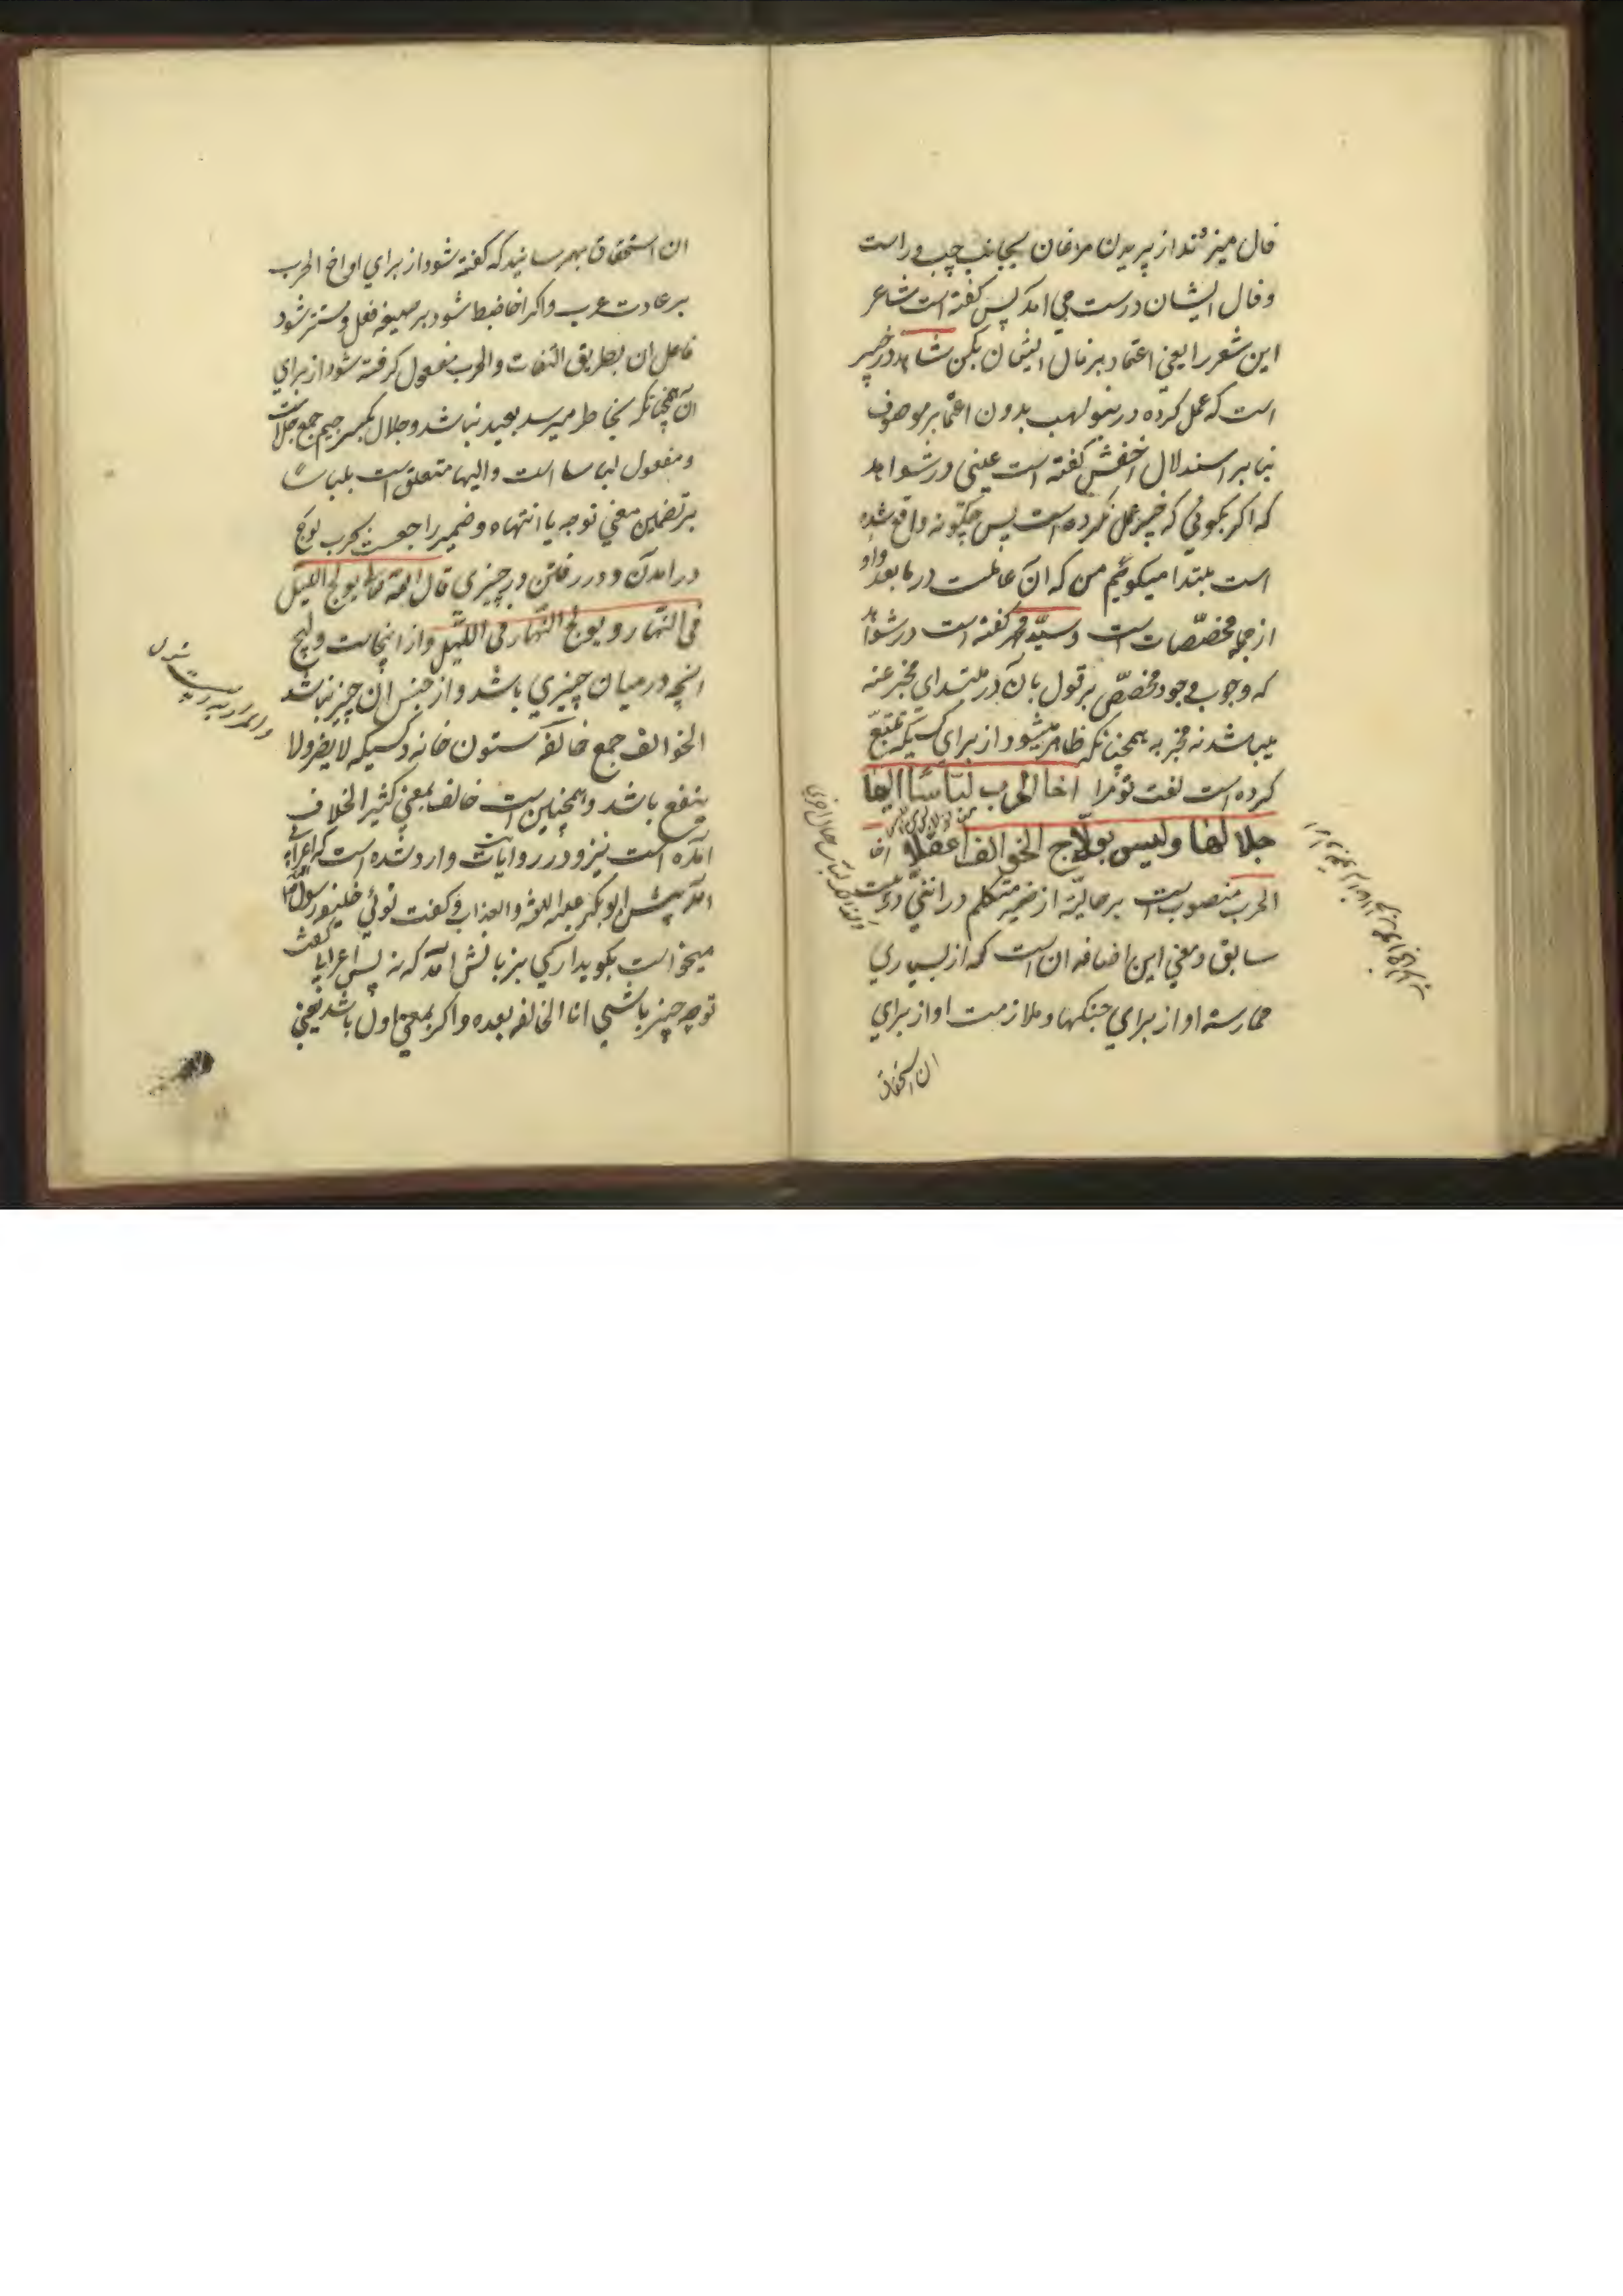 فال میزدند از پریدن مرغان بجانب چپ و راست
و فال ایشان درست می امد پس کفته است شاعر
این شعر را یعنی اعتماد بر فال ایشان بکن شاهد در خبیر
است که عمل کرده در بنو لهب بدون اعتماد بر موصوف
بنا بر استدلال اخفش کفته است عینی در شواهد
که اکر بکوئی که خبیر عمل نکرده است پس چکونه واقع شده
است مبتدا میکوئیم من که ان عاملست در ما بعد و او
از جمله مخصّصات است و سیّد کفته است در شواهد
که وجوب وجود مخصّص بر قول بان در مبتدای مخبر عنه
میباشد نه مخبر به همچنانکه ظاهر میشود از برای کسیکه تتبّع
کرده است لغت قوم را اخا الحرب لبّاسًا الیها
جلالها ولیس بولّاج الخوالف اعقلا اخا
الحرب منصوبست بر حالیّة از ضمیر متکلم در اننی در بیت
سابق و معنی این اضافه ان است که از بسیاری
ممارسة او از برای جنکها و ملازمت او از برای
ان استحقاق
ان استحقاق بهم رسانید که کفته شود از برای او اخ الحرب
بر عادت عرب و اکر اخا ضبط شود بر صیغه فعل و مستتر شود
فاعل ان بطریق التفات و الحرب مفعول کرفته شود از برای
ان همچنانکه بخاطر میرسد بعید نباشد و جلال بکسر جیم جمع جلّ است
و مفعول لباسا است و الیها متعلق است بلباسا
بر تضمین معنی توجه یا انتهاء و ضمیر راجعست بحرب ولوج
در امدن و در رفتن در چیزی قال الله تعالی یولج اللیل
فی النهار و یولج النّهار فی اللیل و از اینجاست ولیج
انچه در میان چیزی باشد و از جنس ان چیز نباشد
الخوالف جمع خالفه ستون خانه و کسیکه لا یضر ولا
ینفع باشد و همچنین است خالف بمعنی کثیر الخلاف
امده است نیز و در روایات وارد شده است که اعرابی
امد پیش ابو بکر علیه اللعنه و العذاب و کفت توئی خلیفه رسول الله
میخواست بکوید اری بزبانش امد که نه پس اعرابی کفت
تو چه چیز باشی انا الخالفه بعده و اکر بمعنی اول باشد یعنی